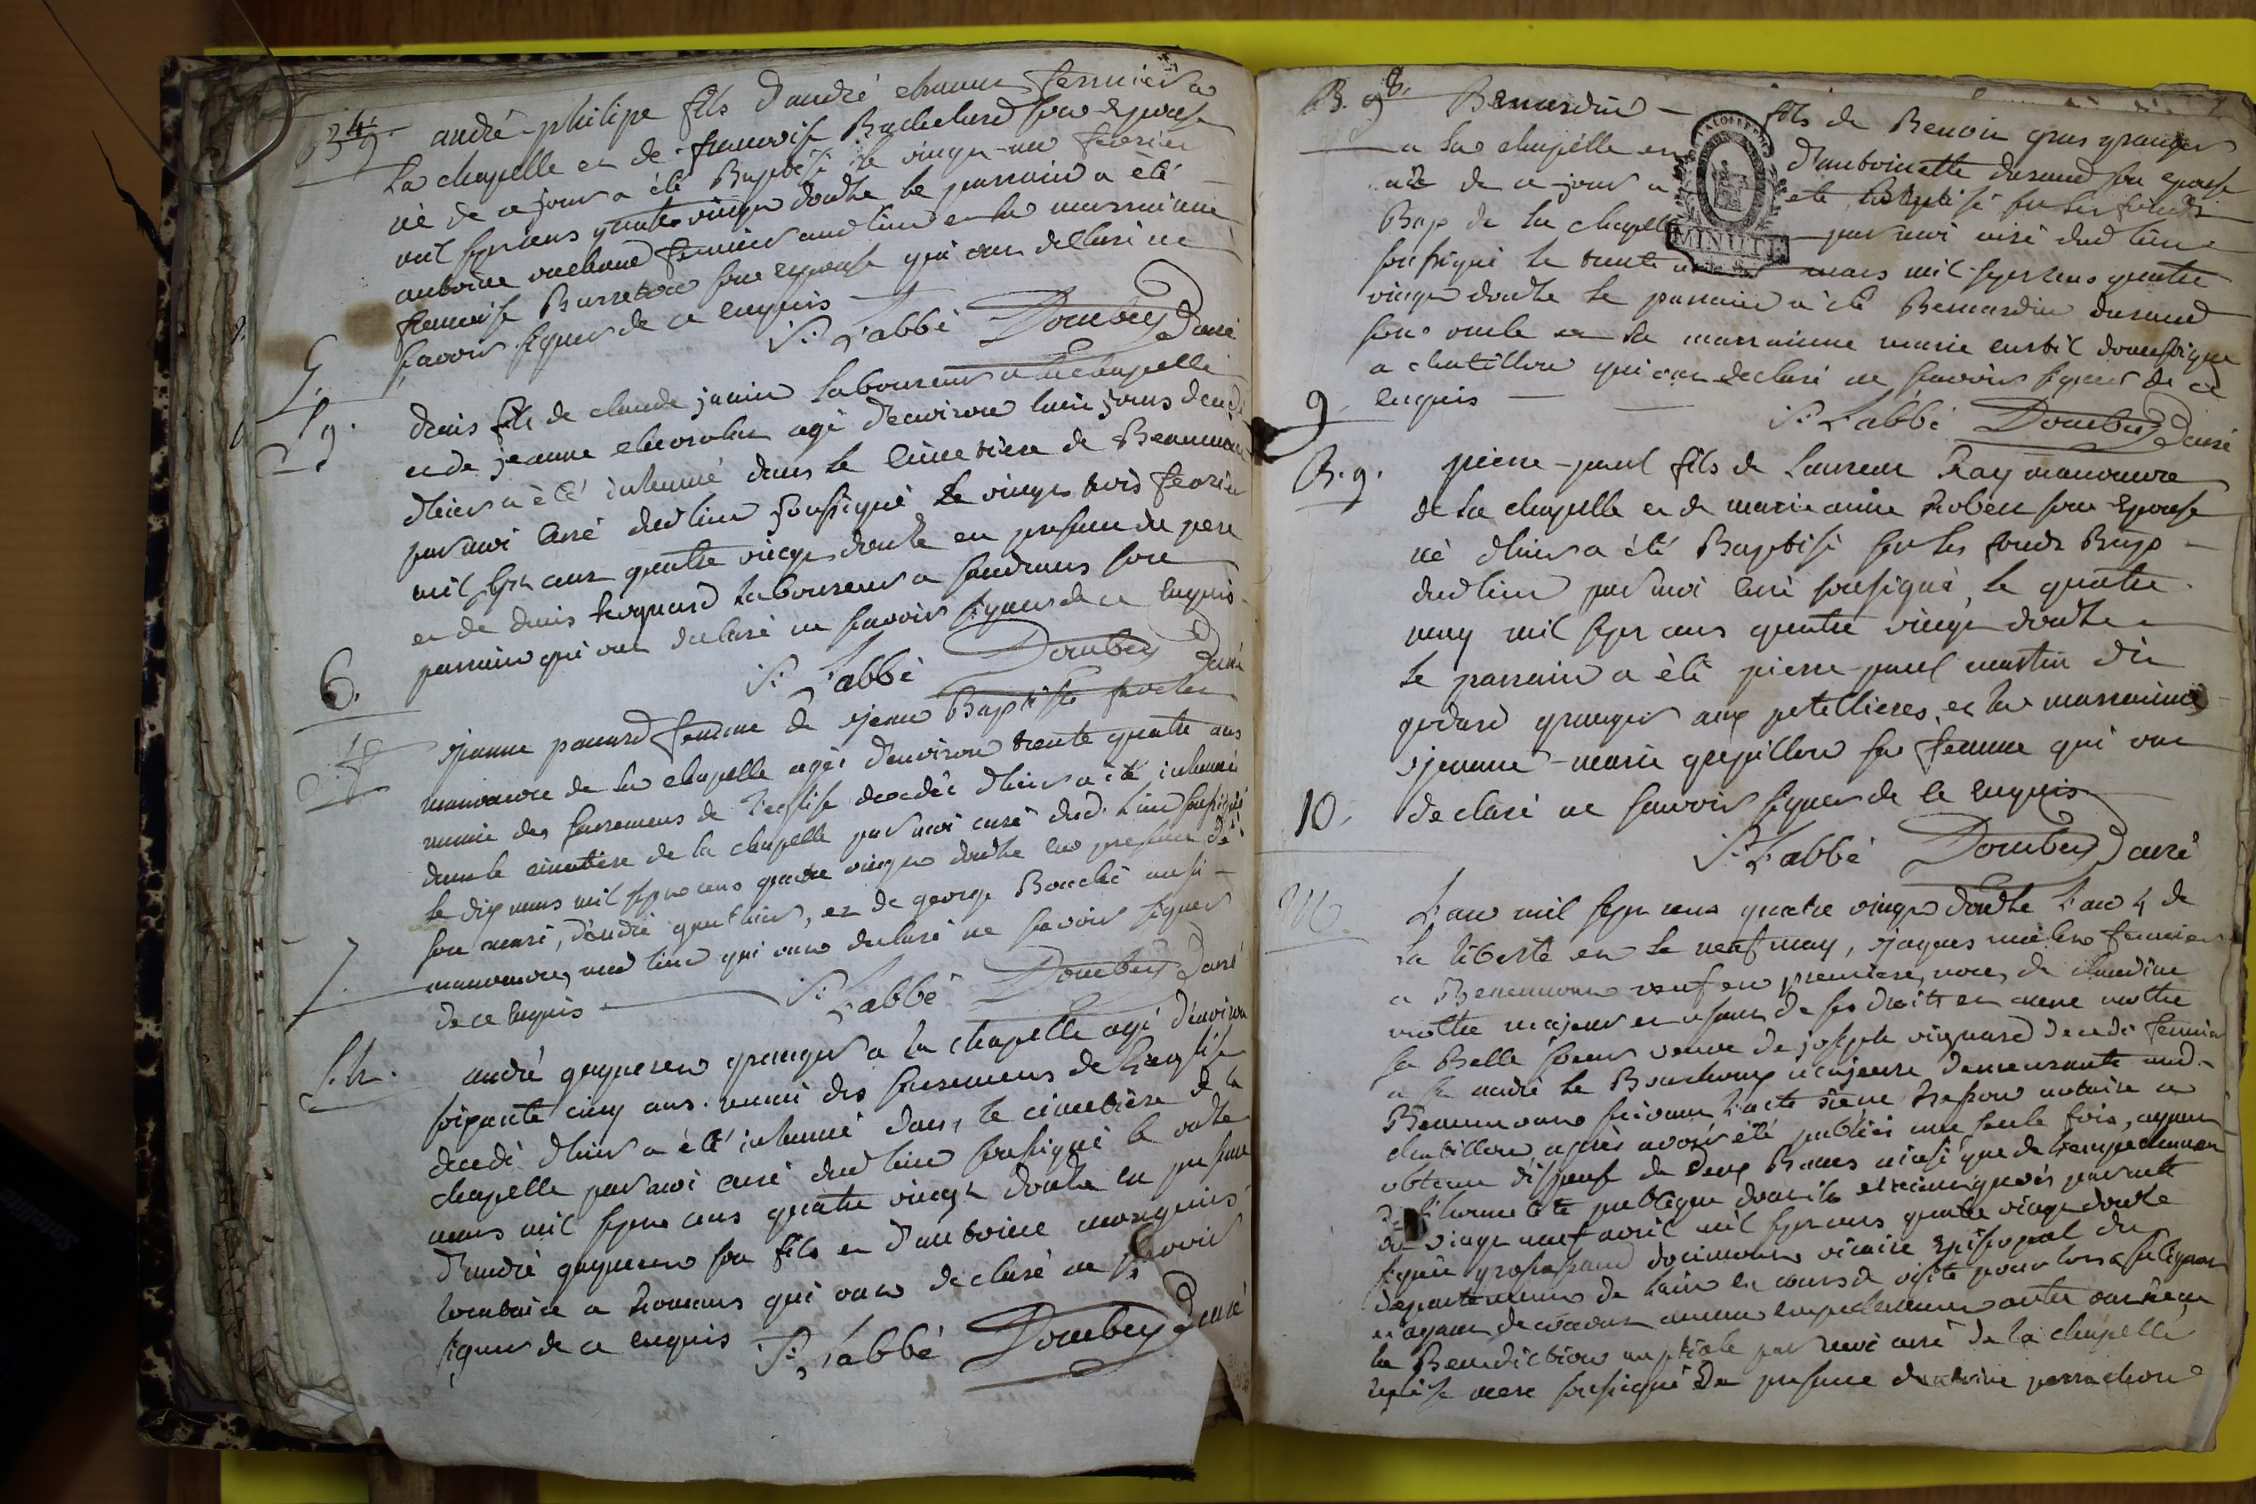 4.
B.g.
andré-philipe fils d'andré fermier a
La chapelle et de francoise Bachelard son Epouse
né de ce jour a été Baptisé le vingt-un fevrier
mil sept cens quatre vingt douze le parrain a été
antoine fermier aud lieu et la marrainne
francoise son epouse qui ont declaré ne
scavoir signer de ce enquis
S. L'abbé Dombey Curé
5.
S g.
denis fils de claude janin Laboureur a la chapelle
et de jeanne agé d'environ huit jours decedé
d'hier a été inhumé dans le cimetiere de Beaumont
par moi curé dud lieu soussigné le vingt trois fevrier
mil sept cens quatre vingt douze en presence du pere
et de denis Laboureur a sandrans son
parrain qui ont declaré ne scavoir signer de ce enquis
S. L'abbé Dombey Curé
6.
S f
jeanne panard femme de jean Baptiste
manoeuvre de la chapelle agée d'environ trente quatre ans
munie des sacremens de l'eglise decedée d'hier a été inhumée
dans le cimetiere de la chapelle par moi curé dud. Lieu soussigné
le dix mars mil sept cens quatre vingt douze en presence de
son mari, d'andré gauthier, et de george Bouchié aussi
manoeuvres aud lieu qui ont declaré ne scavoir signer
de ce enquis
S. L'abbé Dombey Curé
7.
S.h.
andré granger a la chapelle agé d'environ
soixante cinq ans muni des sacremens de L'eglise
decedé d'hier a été inhumé dans le cimetière de la
chapelle par moi curé dud lieu soussigné le onze
mars mil sept cens quatre vingt douze en presence
d'andré son fils et d'antoine
a Romans qui ont declaré ne scavoir
signer de ce enquis S. L'abbé Dombey Curé
8.
B. g
Bernardin fils de Benoit gras granger
a La chapelle et d'antoinette durand son epouse
né de ce jour a été Baptisé sur les fonds
Bap de la chapelle par moi curé dud lieu
soussigné le trente mars mil sept cens quatre
vingt douze le parrain a été Bernardin durand
son oncle et la marrainne marie domestique
a chatillon qui ont declaré ne scavoir signer de ce
enquis
MINUTE
S. L'abbé Dombey Curé
9.
B.g.
pierre-paul fils de Laurent Ray manoeuvre
de la chapelle et de marie anne Robert son Epouse
né d'hier a été Baptisé sur les fonds Bap
dud lieu par moi curé soussigné, le quatre
may mil sept cens quatre vingt douze
le parrain a été pierre-paul martin dit
godard granger aux petellieres, et la marrainne
jeanne-marie grepillon sa femme qui ont
declaré ne scavoir signer de ce enquis
S. L'abbé Dombey Curé
10.
M.
L'an mil sept cens quatre vingt douze L'an 4 de
La liberté et le neuf may, jaques fermier
a Beaumont veuf en premiere noces de claudine
mothe majeur et usant de ses droits et anne mothe
sa Belle soeur veuve de joseph vignard decedé fermier
a st andré le Bouchoux majeure demeurante aud
Beaumont suivant L'acte notaire a
chatillon après avoir été publiés une seule fois, ayant
obtenu dispense de deux Bans ainsi que de l'empechement
de l'honneteté publique
du vingt neuf avril mil sept cens quatre vingt douze
signée vicaire Episcopal du
departement de L'ain en cours de visite pour lors
n'ayant decouvert aucun empechement
la Benediction nuptiale par moi curé de la chapelle
soussigné En presence d'antoine perrachon